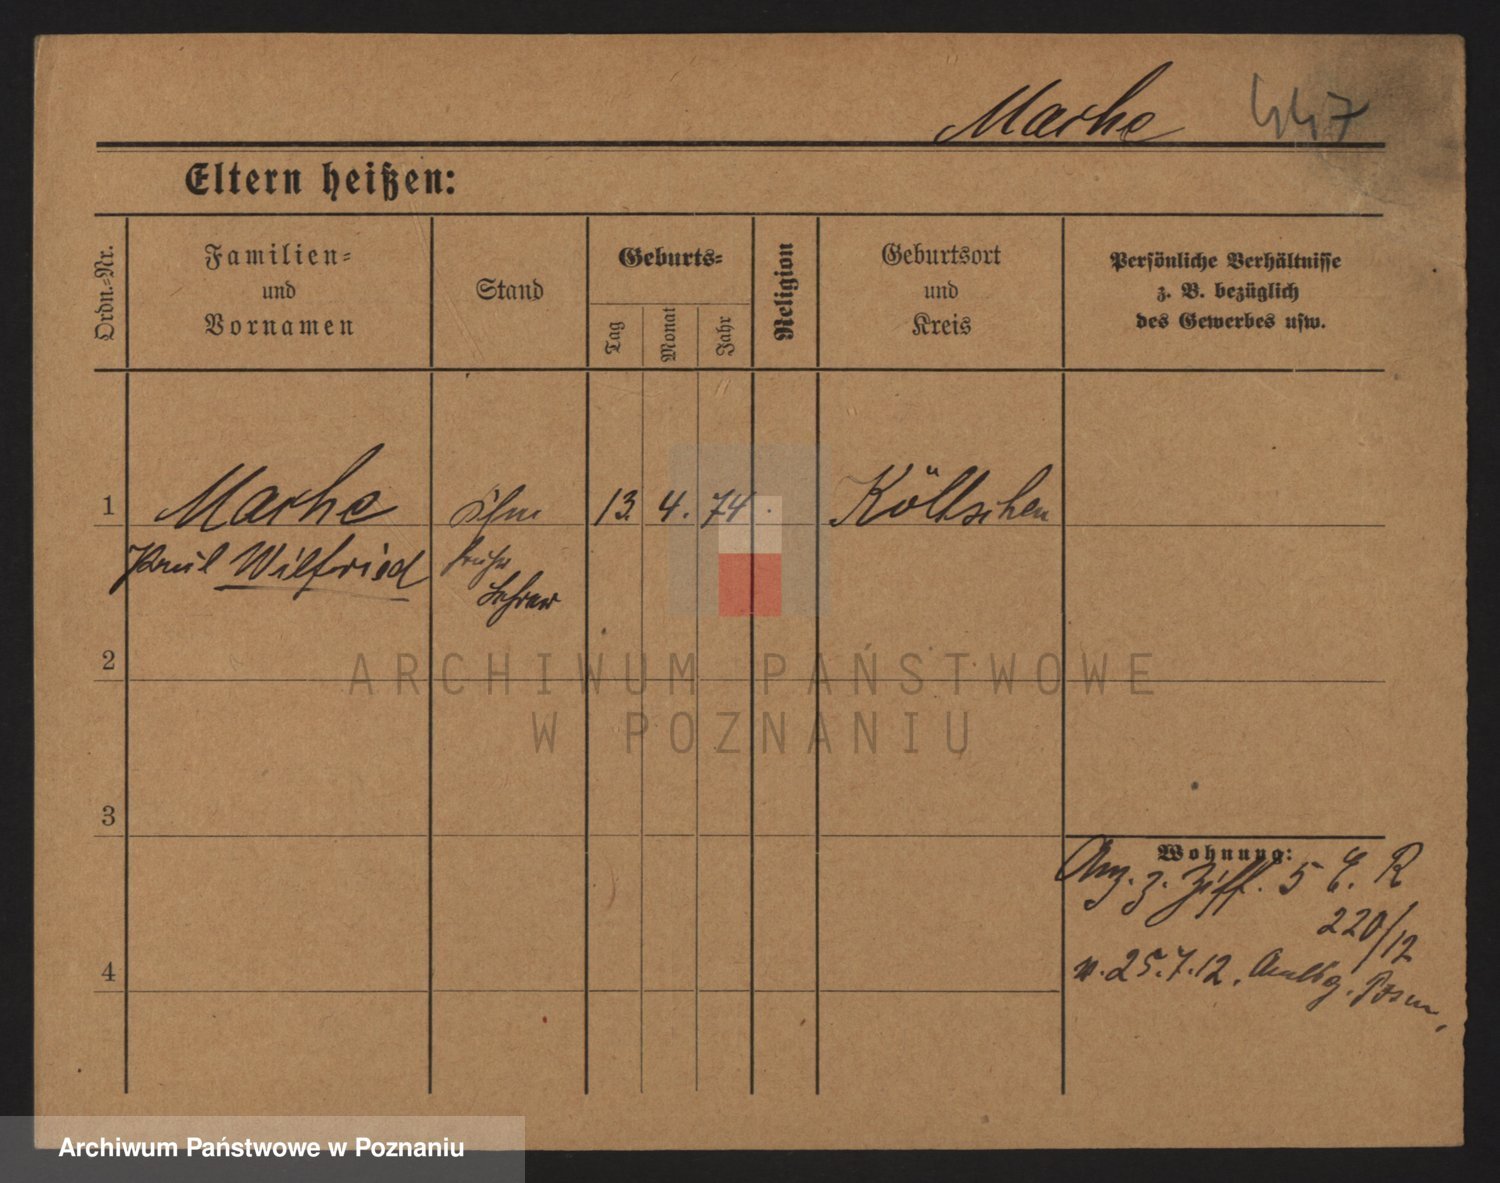 Marhe 447
Eltern heißen:
Ordn.-Nr.
Familien-
und
Vornamen
Stand
Geburts-
Tag
Monat
Jahr
Religion
Geburtsort
und
Kreis
Persönliche Verhältnisse
z. B. bezüglich
des Gewerbes usw.
1 Marhe 13. 4. 74. Költschen
Paul Wilfried früher
Lehrer
2
ARCHIWUM PAŃSTWOWE
W POZNANIU
3
Wohnung:
Anz. z. Ziff. 5 E. R
220/12
4
v. 25.7.12. Posen,
Archiwum Państwowe w Poznaniu